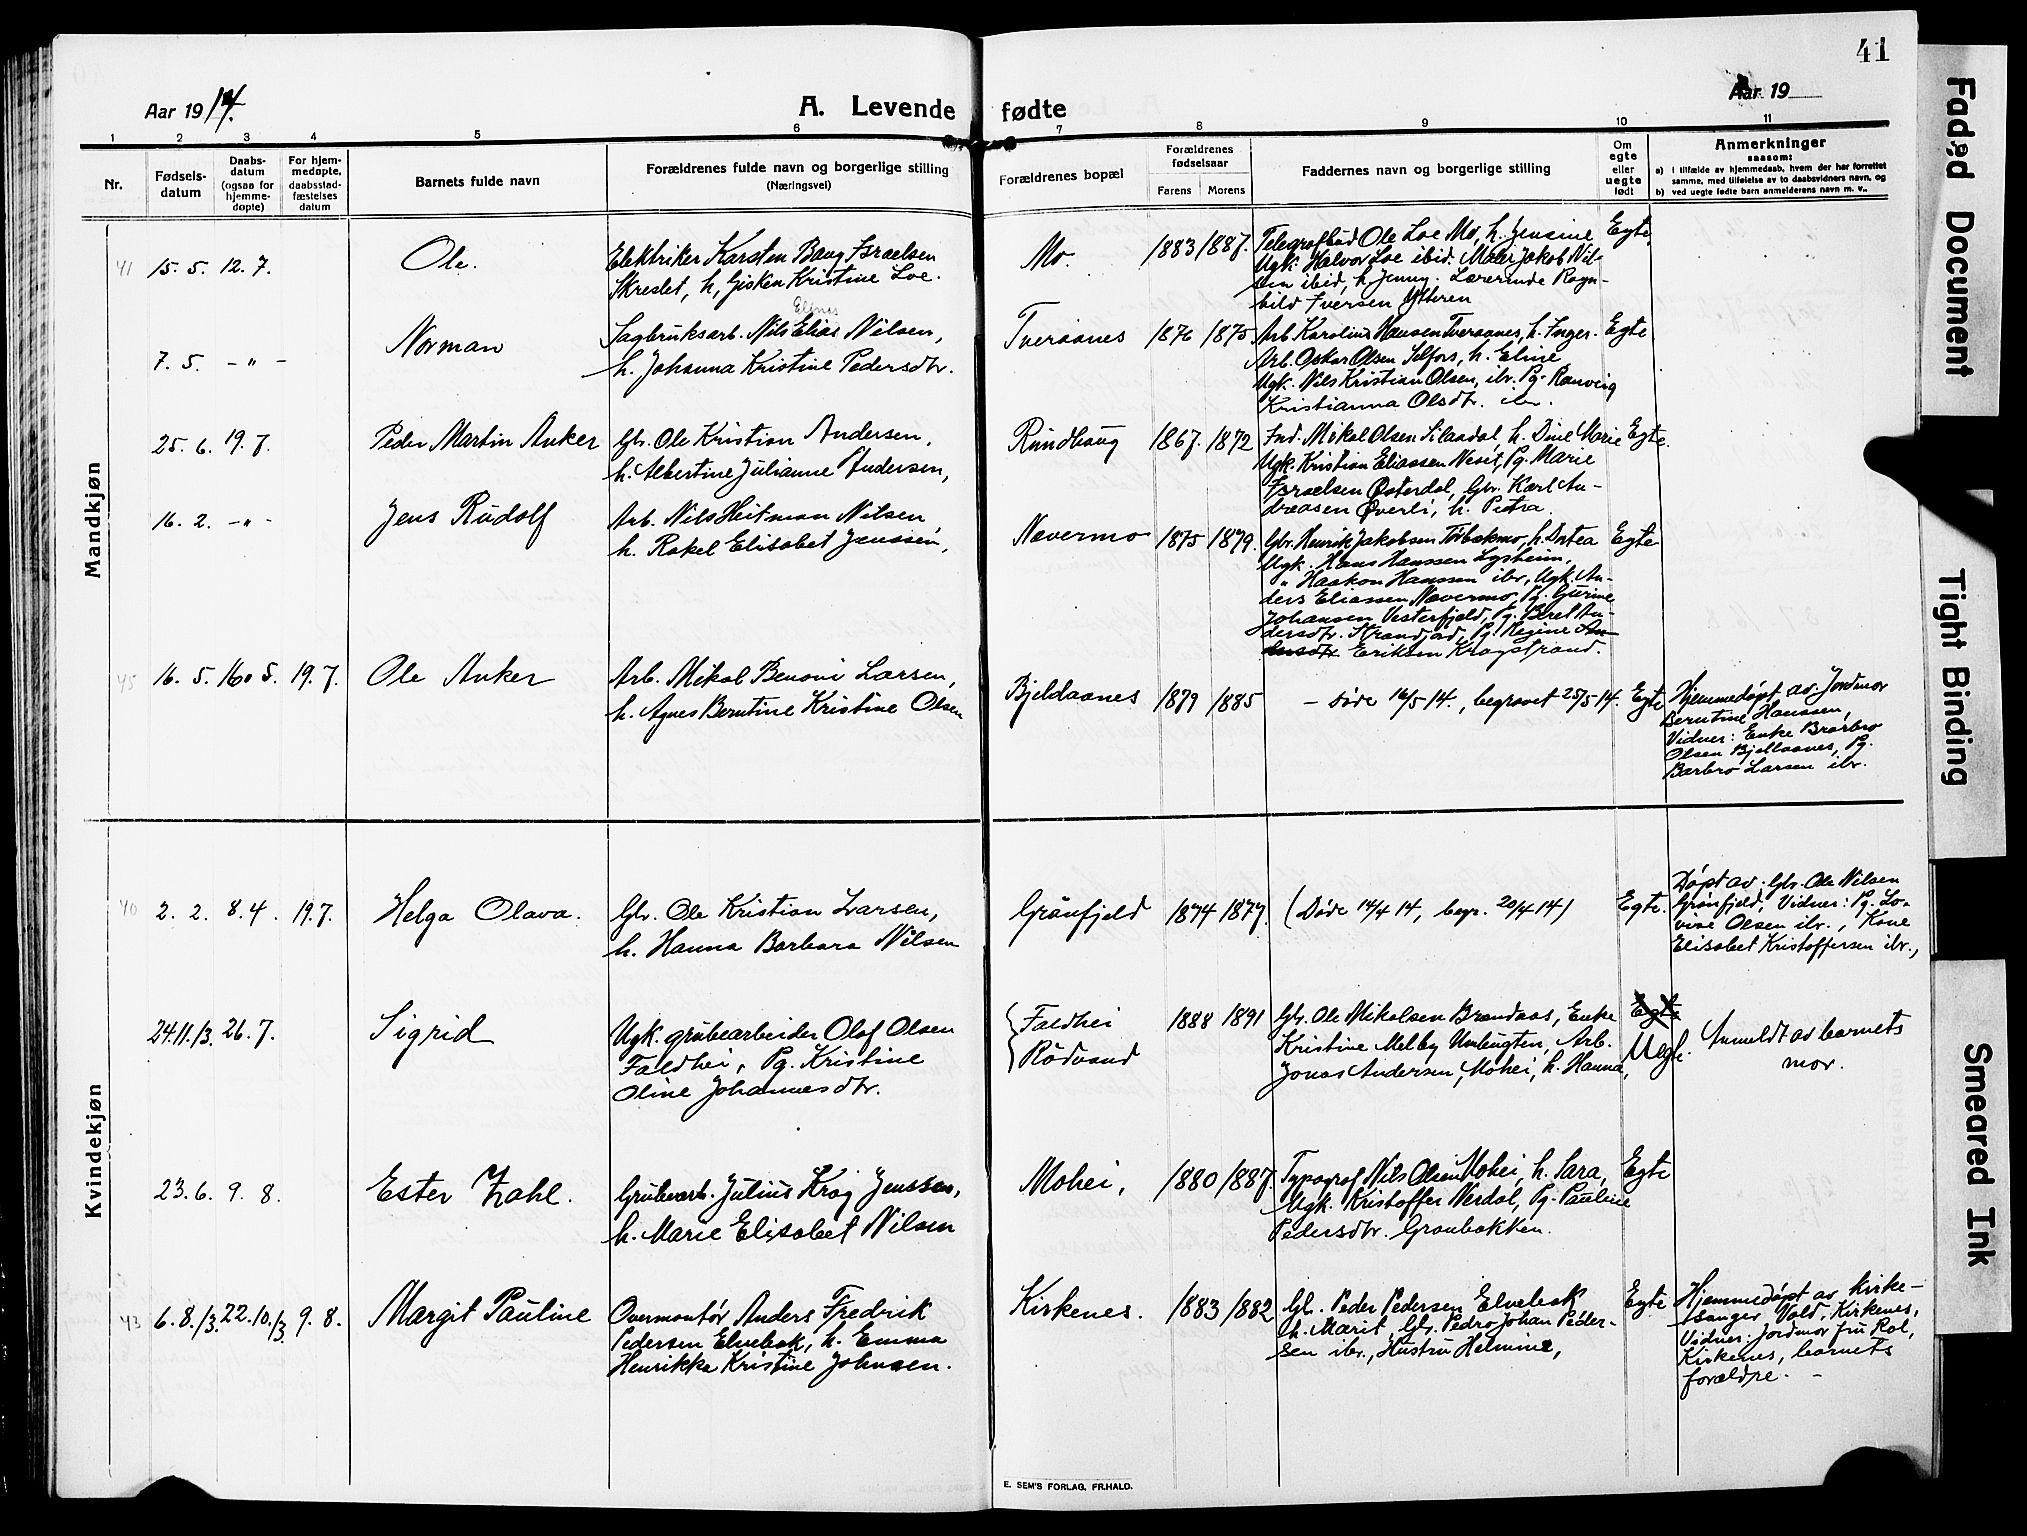 41
Aar 1914.
A. Levende fødte
Aar 19
1 2 3 4 5 6 7 8 9 10 11
Nr.
Fødsels-
datum
Daabs-
datum
(ogsaa for
hjemme-
døpte)
For hjem-
medøpte,
daabsstad-
fæstelses
datum
Barnets fulde navn
Forældrenes fulde navn og borgerlige stilling
(Næringsvei)
Forældrenes bopæl
Forældrenes
fødselsaar
Farens Morens
Faddernes navn og borgerlige stilling
Om
egte
eller
uegte
født
Anmerkninger
saasom:
a) i tilfælde av hjemmedaab, hvem der har forrettet
samme, med tilføielse av to daabsvidners navn, og
b) ved uegte fødte barn anmelderens navn m. v..
Mandkjøn
41 15. 5. 12. 7.
Ole.
Elektriker Karsten Bang Israelsen
Skreslet, h, Gisken Kristine Loe.
Mo.
1883 1887.
Telegrafbud Ole Loe Mo, h. Jensine
Ugk. Halvor Loe ibid. Maler Jakob Nil-
sen ibid, h. Jenny. Lærerinde Ragn-
hild Iversen Ytteren
Egte,
7. 5. - " -
Norman
Elenes
Sagbruksarb. Nils Elias Nilsen,
h. Johanna Kristine Pedersdtr.
Tveraanes
1876 1875
Arb. Karolius Hansen Tveraanes, h. Inger.
Arb. Oskar Olsen Selfors, h. Eline
Ugk. Nils Kristian Olsen, ibr. Pg. Ranveig
Kristianna Olsdtr. ibr.
Egte
25. 6. 19. 7.
Peder Martin Anker
Gbr. Ole Kristian Andersen,
h. Albertine Julianne Andersen,
Rundhaug
1867. 1872
Ind. Mikal Olsen Silaadal, h. Dine Marie
Ugk. Kristian Eliassen Neset, Pg. Marie
Israelsen Østerdal, Gbr. Karl An-
dreasen Øverli, h. Petra.
Egte.
16. 2. - " -
Jens Rudolf
Arb. Nils Heitman Nilsen,
h. Rakel Elisabet Jenssen,
Nævermo
1875 1879.
Gbr. Henrik Jakobsen Torbakmo, h. Dortea
Ugk. Hans Hanssen Lysheim,
" Haakon Hanssen ibr, Ugk. An-
ders Eliassen Nævermo, Pg. Gurine
Johansen Vesterfjeld, Pg. Beret An-
dersdtr. Strandjord, Pg. Regine An-
dersdtr Eriksen Kragstrand.
Egte
45 16. 5. 160 5. 19. 7.
Ole Anker
Arb. Mikal Benoni Larsen,
h. Agnes Berntine Kristine Olsen
Bjeldaanes
1879 1885
- Døde 16/5 14., begravet 25/5 14.
Egte
Hjemmedøpt av Jordmor
Berntine Hanssen,
Vidner: Enke Brarbro
Olsen Bjellaanes, Pg.
Barbro Larsen ibr.
Kvindekjøn
40 2. 2. 8. 4. 19. 7.
Helga Olava.
Gbr. Ole Kristian Larsen,
h. Hanna Barbara Nilsen
Grønfjeld
1874 1877.
(Døde 14/4 14, begr. 20/4 14)
Egte.
Døpt av: Gbr. Ole Nilsen
Grønfjeld, Vidner: Pg. Lo-
vise Olsen ibr., Kone
Elisabet Kristoffersen ibr.,
24. 11./3. 26. 7.
Sigrid
Ugk. grubearbeider Olaf Olsen
Faldhei, Pg. Kristine
Oline Johannesdtr.
Faldhei
Rødvand
1888 1891
Gbr. Ole Mikalsen Brendaas, Enke
Kristine Melby Umbugten, Arb.
Jonas Andersen, Mohei, h. Hanna,
Egte
Uegte.
Anmeldt av barnets
mor.
23. 6. 9. 8.
Ester Zahl.
Grubearb. Julius Krag Jenssen,
h. Marie Elisabet Nilsen
Mohei,
1880 1887.
Typograf Nils Olsen Mohei, h. Sara,
Ugk. Kristoffer Verdal, Pg. Pauline
Pedersdtr. Graubakken.
Egte
43 6. 8./3. 22. 10./3 9. 8.
Margit Pauline
Overmontør Anders Fredrik
Pedersen Elvebak, h. Emma
Henrikke Kristine Johnsen.
Kirkenes.
1883 1882
Gbr. Peder Pedersen Elvebak
h. Marit, Gbr. Pedro Johan Peder-
sen ibr., Hustru Helmine,
Egte
Hjemmedøpt av Kirke-
sanger Vold, Kirkenes,
Vidner: Jordmor fru Rol,
Kirkenes, barnets
forældre. -
E. SEM'S FORLAG, FR.HALD.
Faded Document
Tight Binding
Smeared Ink